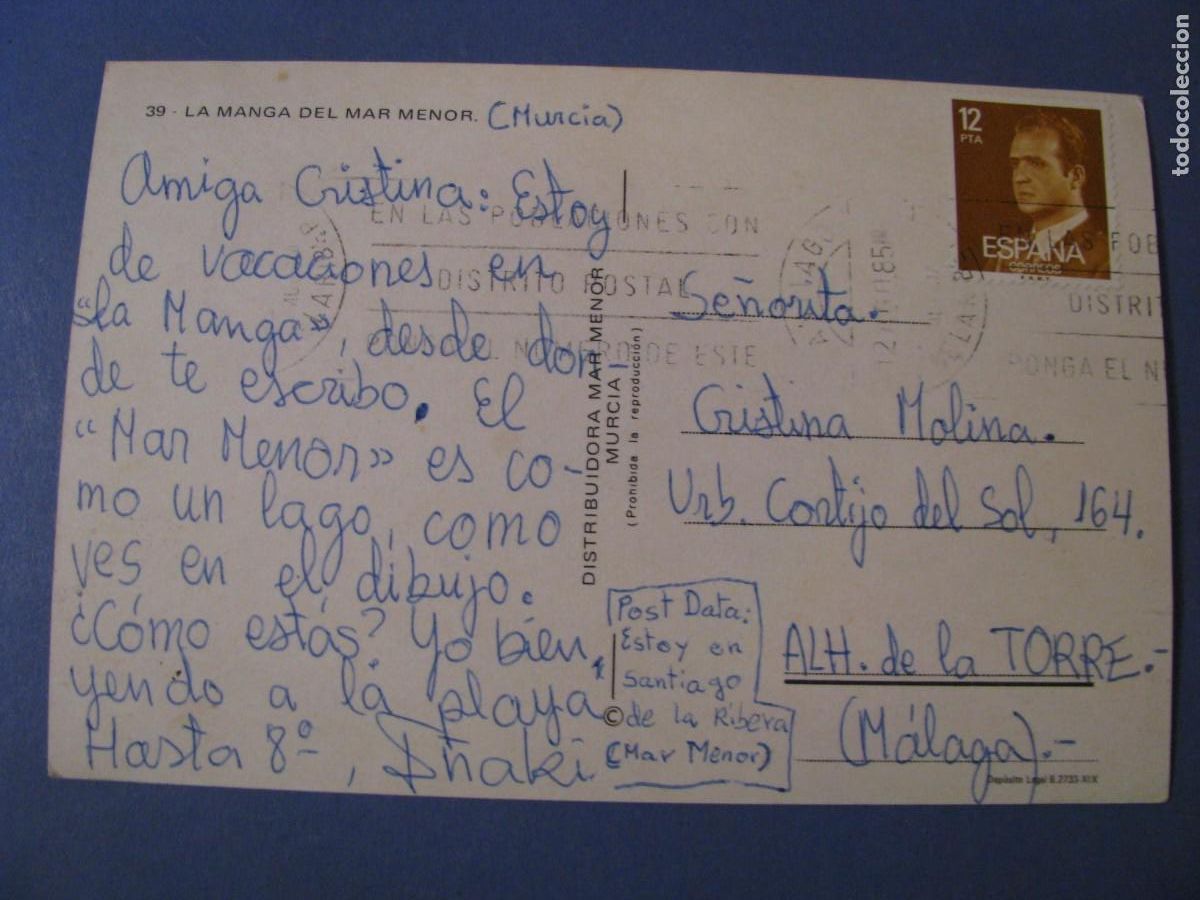 39 - LA MANGA DEL MAR MENOR. (Murcia)
Amiga Cristina: Estoy
de vacaciones en
"la Manga", desde don-
de te escribo. El
"Mar Menor" es co-
mo un lago, como
ves en el dibujo.
¿Cómo estás? Yo bien,
yendo a la playa
Hasta 8º, Iñaki
DISTRIBUIDORA MAR MENOR
MURCIA
(Prohibida la reproducción)
Post Data:
Estoy en
Santiago
© de la Ribera
(Mar Menor)
12
PTA
ESPAÑA
CORREOS
F.N.M.T.
EN LAS POBLACIONES CON
DISTRITO POSTAL
NUMERO DE ESTE
EN LAS POB
DISTRIT
PONGA EL N
Señorita.
Cristina Molina.
Urb. Cortijo del Sol, 164.
ALH. de la TORRE.-
(Málaga).-
Depósito Legal B.2733-XIX
todocoleccion